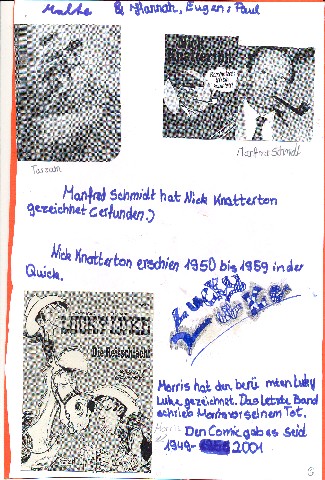 Malte & Hannah, Eugen, Paul
Tarzan
Manfred Schmidt
Manfred Schmidt hat Nick Knatterton
gezeichnet (erfunden.)
Nick Knatterton erschien 1950 bis 1959 in der
Quick.
Lucky
Luke
LUCKY LUKE
Die Reisschlacht
Morris
Morris hat den berü mten Luky
Luke gezeichnet. Das Letzte Band
schrieb Morris vor seinem Tot.
Den Comic gab es seid
1949- 2001